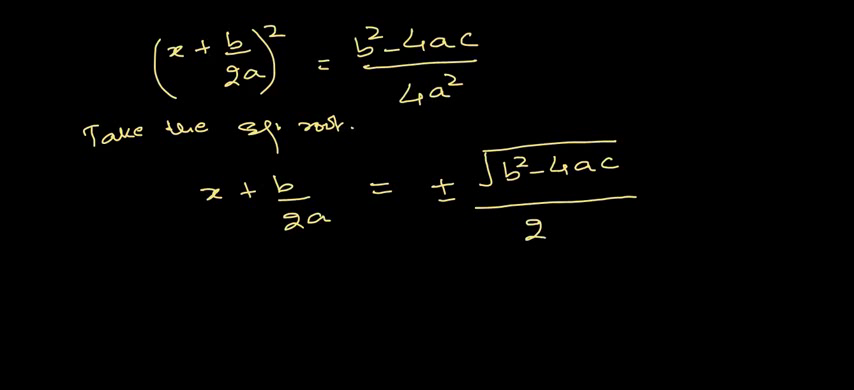 (x + b/2a)² = b² - 4ac / 4a²
Take the sq. root.
x + b/2a = ± √(b² - 4ac) / 2